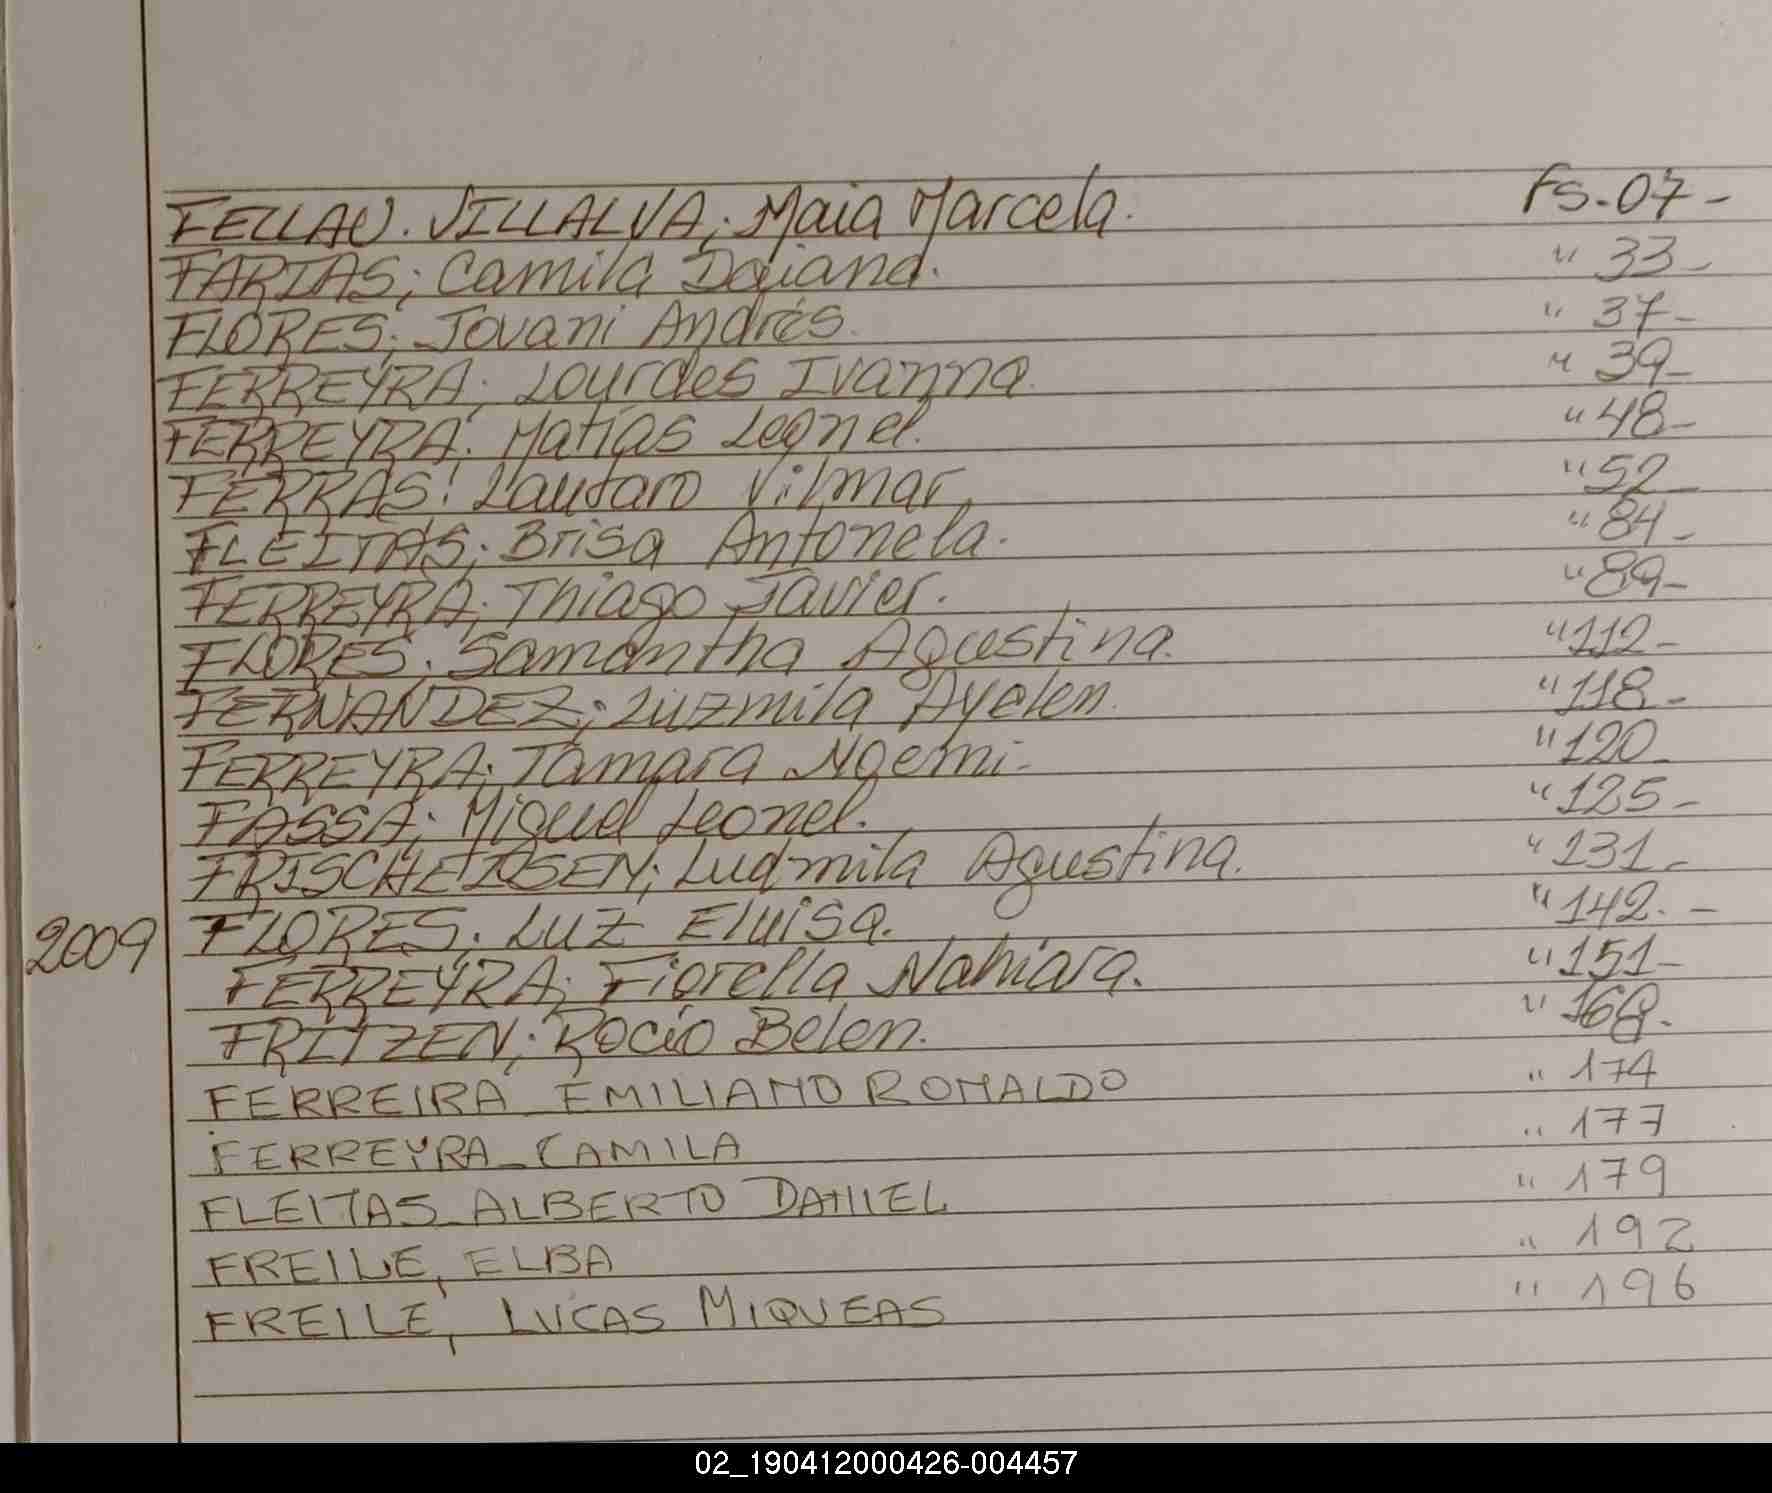 FELLAU. VILLALVA; Maia Marcela. Fs.07-
FARIAS; Camila Daiana. " 33-
FLORES; Jovani Andrés. " 37-
FERREYRA; Lourdes Ivanna. " 39-
FERREYRA; Matías Leonel. " 48-
FERRAS; Lautaro Vilmar. " 52-
FLEITAS; Brisa Antonela. " 84-
FERREYRA; Thiago Javier. " 89-
FLORES; Samantha Agustina. " 112-
FERNANDEZ; Luzmila Ayelen. " 118-
FERREYRA; Tamara Noemi- " 120-
FASSA; Miguel Leonel. " 125-
FRISCHEISEN; Ludmila Agustina. " 131-
2009 FLORES; Luz Eluisa. " 142.-
FERREYRA; Fiorella Nahiara. " 151-
FRITZEN; Rocío Belen. " 168.
FERREIRA EMILIANO RONALDO " 174
FERREYRA CAMILA " 177
FLEITAS ALBERTO DANIEL " 179
FREILE, ELBA " 192
FREILE, LUCAS MIQUEAS " 196
02_190412000426-004457